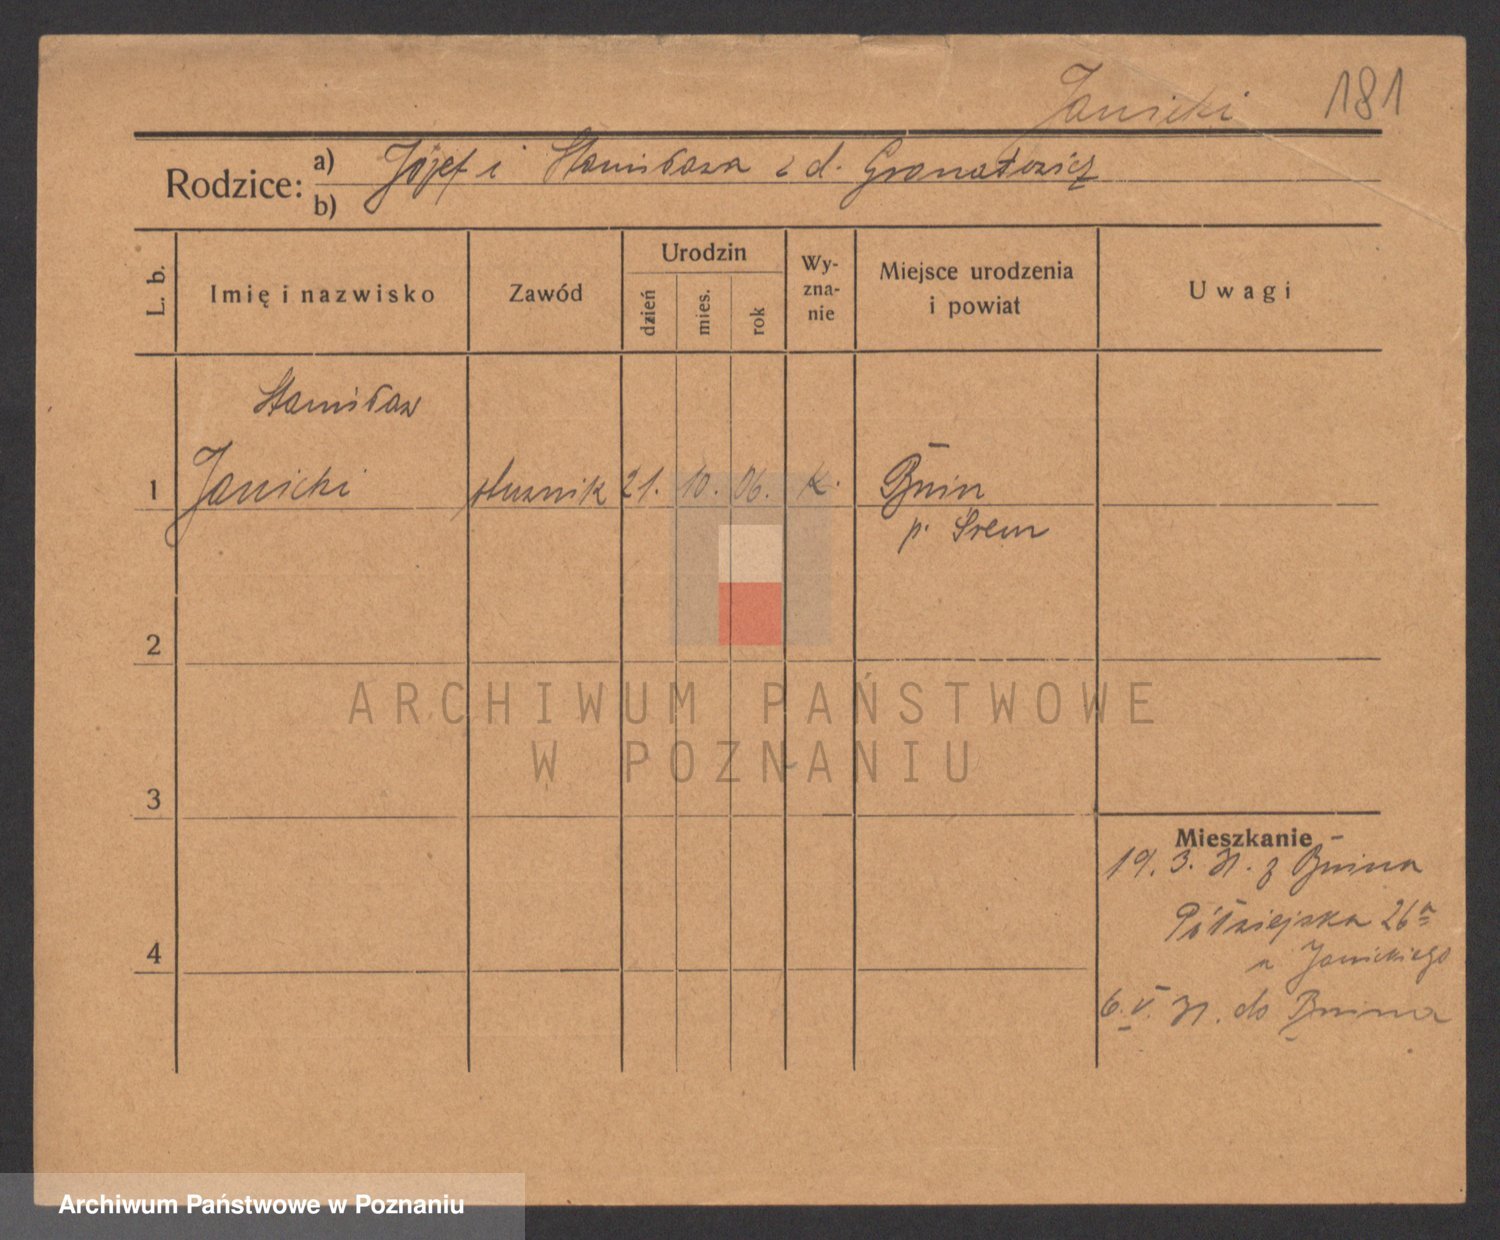 Janicki 181
Rodzice: a) Józef i Stanisława z d. Granatowicz
b)
L. b. Imię i nazwisko Zawód Urodzin dzień mies. rok Wyznanie Miejsce urodzenia i powiat Uwagi
Stanisław
1 Janicki 21. 10. 06. k. Bnin
p. Śrem
2
ARCHIWUM PAŃSTWOWE
W POZNANIU
3
Mieszkanie
19. 3. 31. z Bnina
Półwiejska 26a
u Janickiego
6. V. 31. do Bnina
4
Archiwum Państwowe w Poznaniu